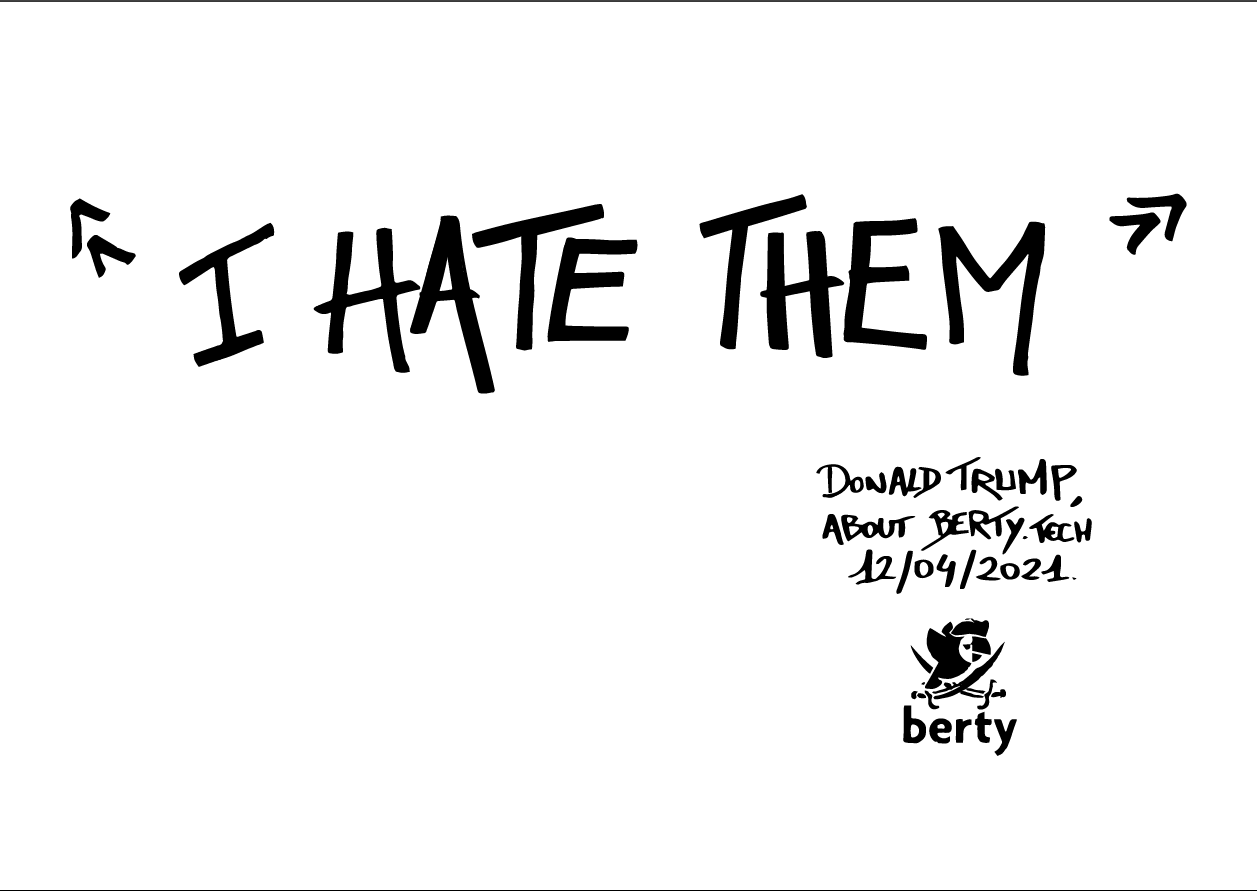 « I HATE THEM »
DONALD TRUMP,
ABOUT BERTY.TECH
12/04/2021.
berty